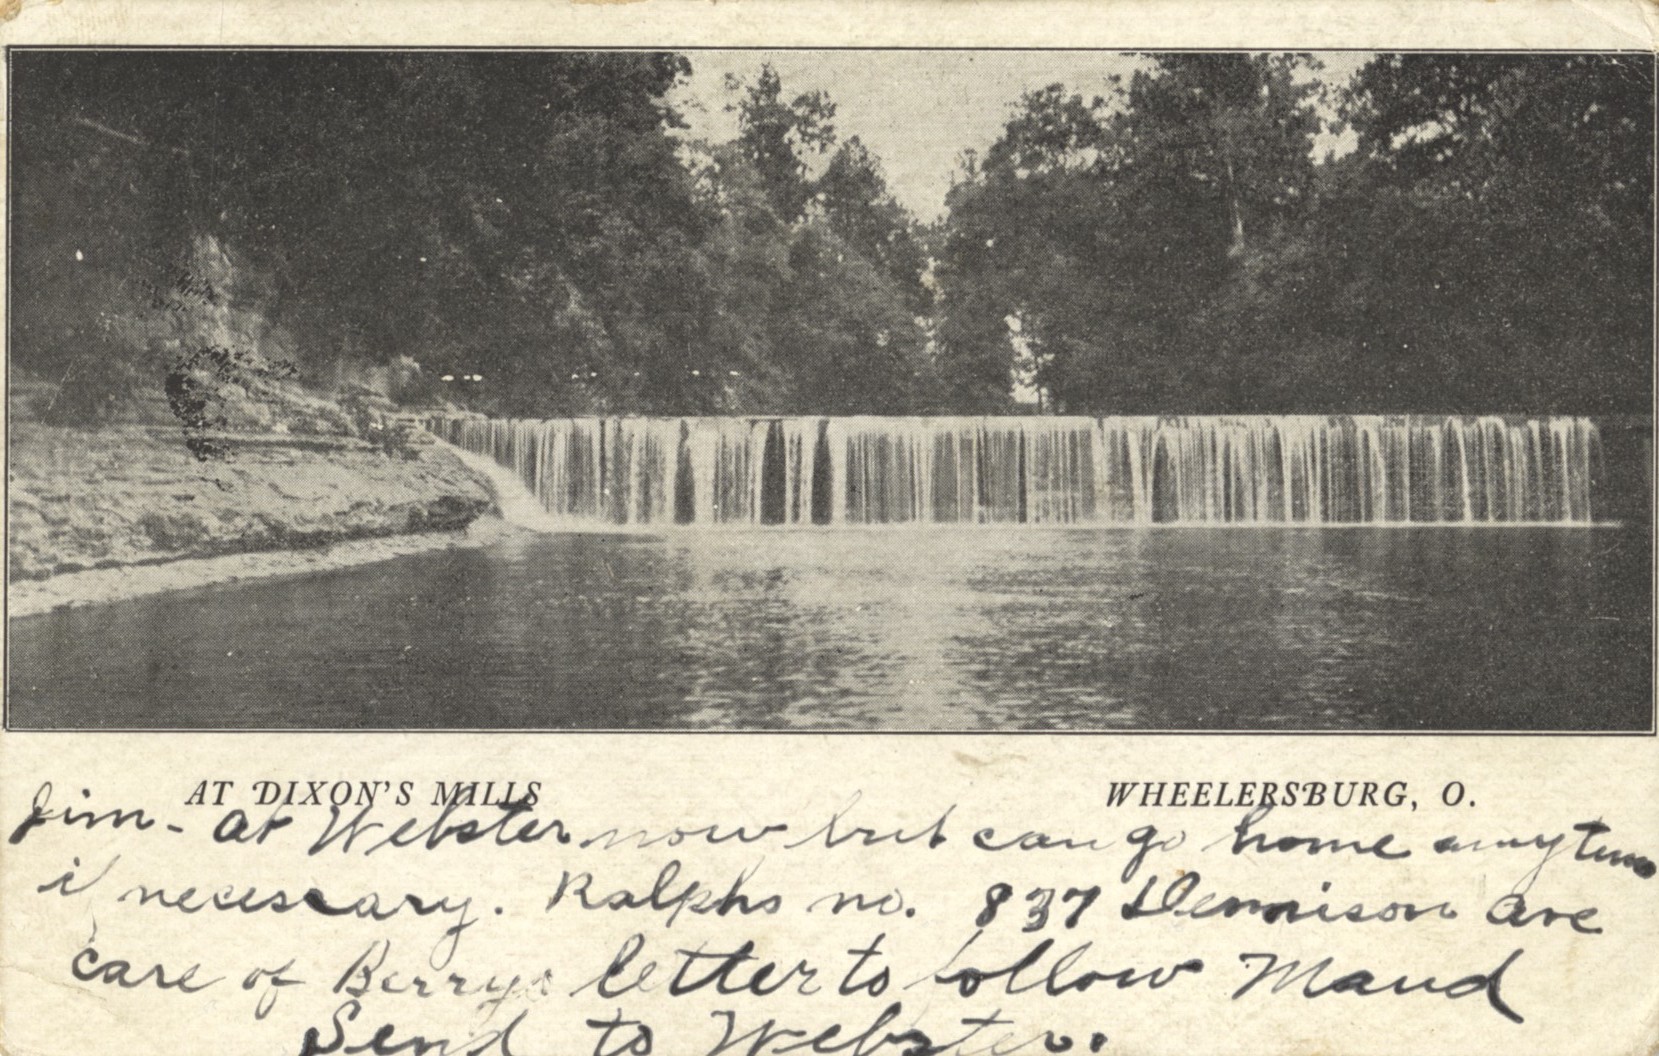 AT DIXON'S MILLS WHEELERSBURG, O.
Jim - at Webster now but can go home any time
if necessary. Ralphs no. 837 Dennison ave
care of Berrys letter to follow Maud
Send to Webster.